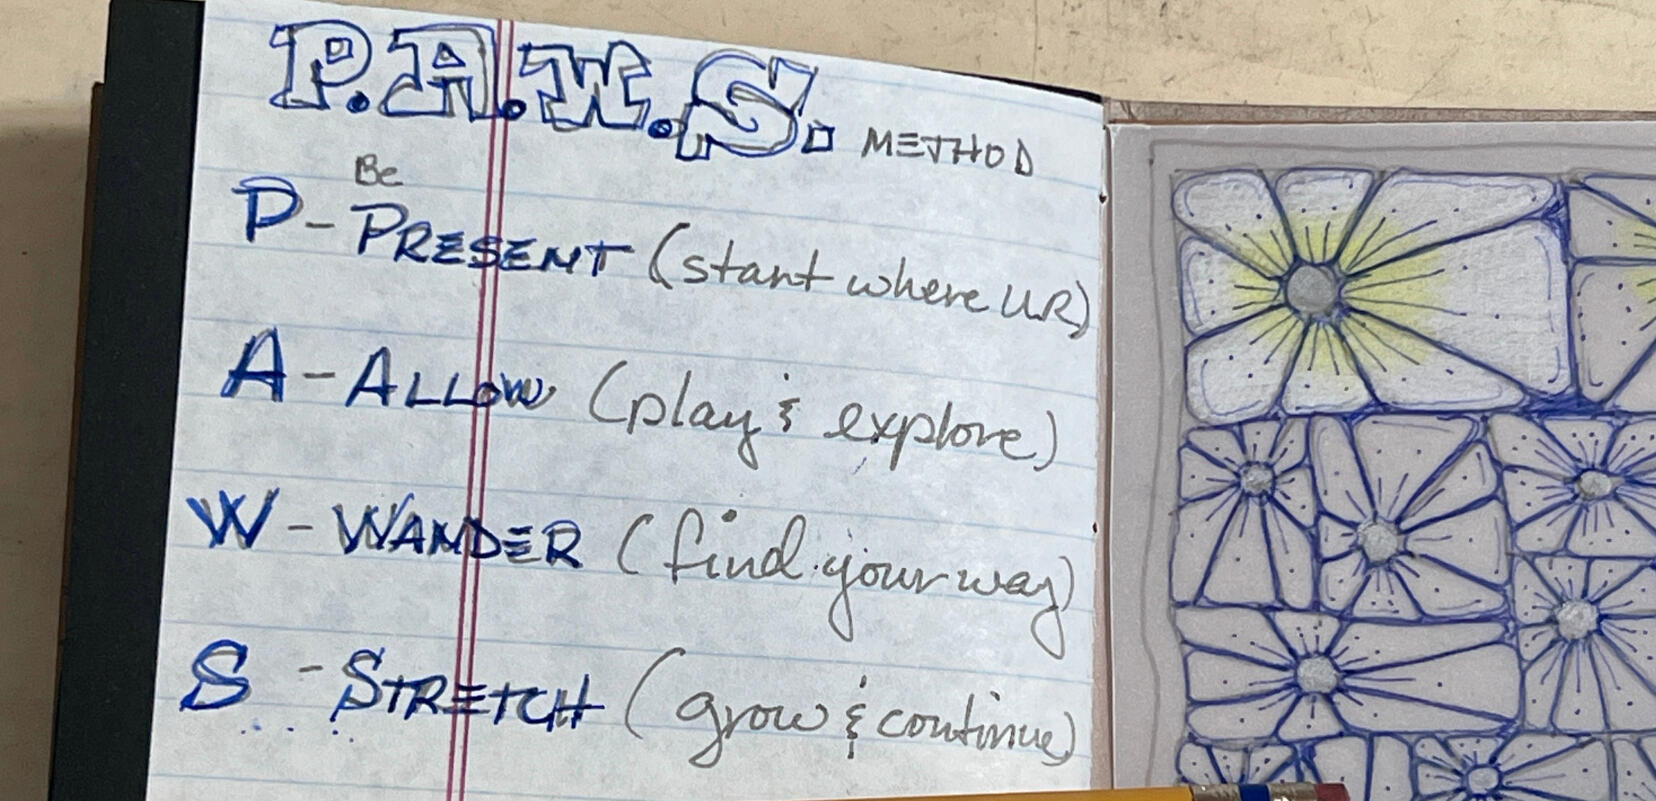 P.A.W.S. METHOD
Be
P - PRESENT (start where UR)
A - ALLOW (play & explore)
W - WANDER (find your way)
S - STRETCH (grow & continue)